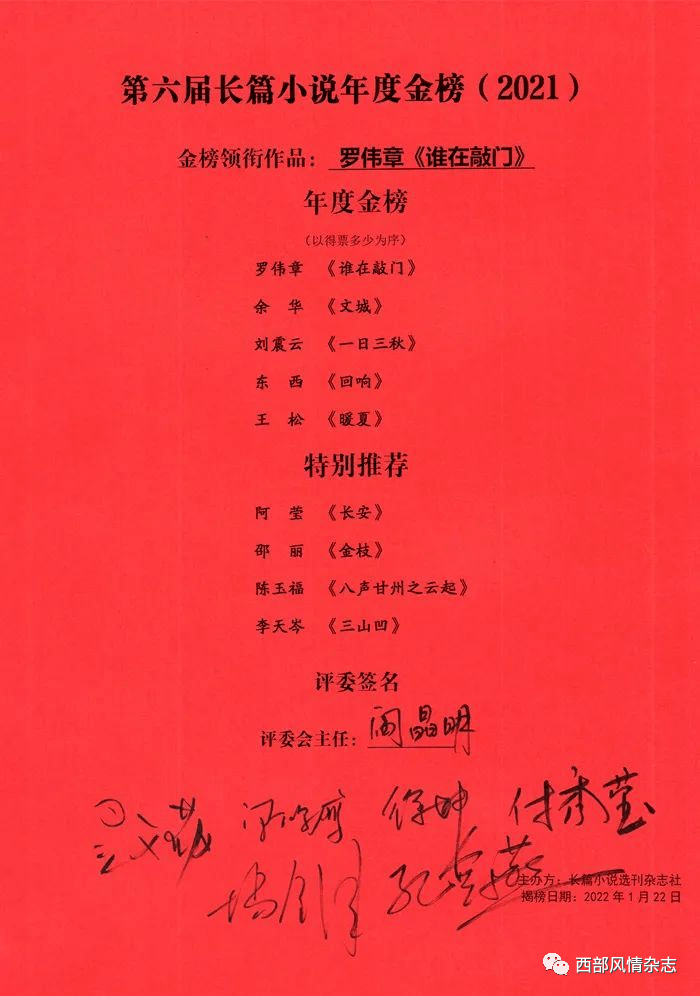 第六届长篇小说年度金榜（2021）
金榜领衔作品： 罗伟章《谁在敲门》
年度金榜
（以得票多少为序）
罗伟章 《谁在敲门》
余 华 《文城》
刘震云 《一日三秋》
东 西 《回响》
王 松 《暖夏》
特别推荐
阿 莹 《长安》
邵 丽 《金枝》
陈玉福 《八声甘州之云起》
李天岑 《三山凹》
评委签名
评委会主任：阎晶明
徐坤 付秀莹
主办方：长篇小说选刊杂志社
揭榜日期：2022 年 1 月 22 日
西部风情杂志